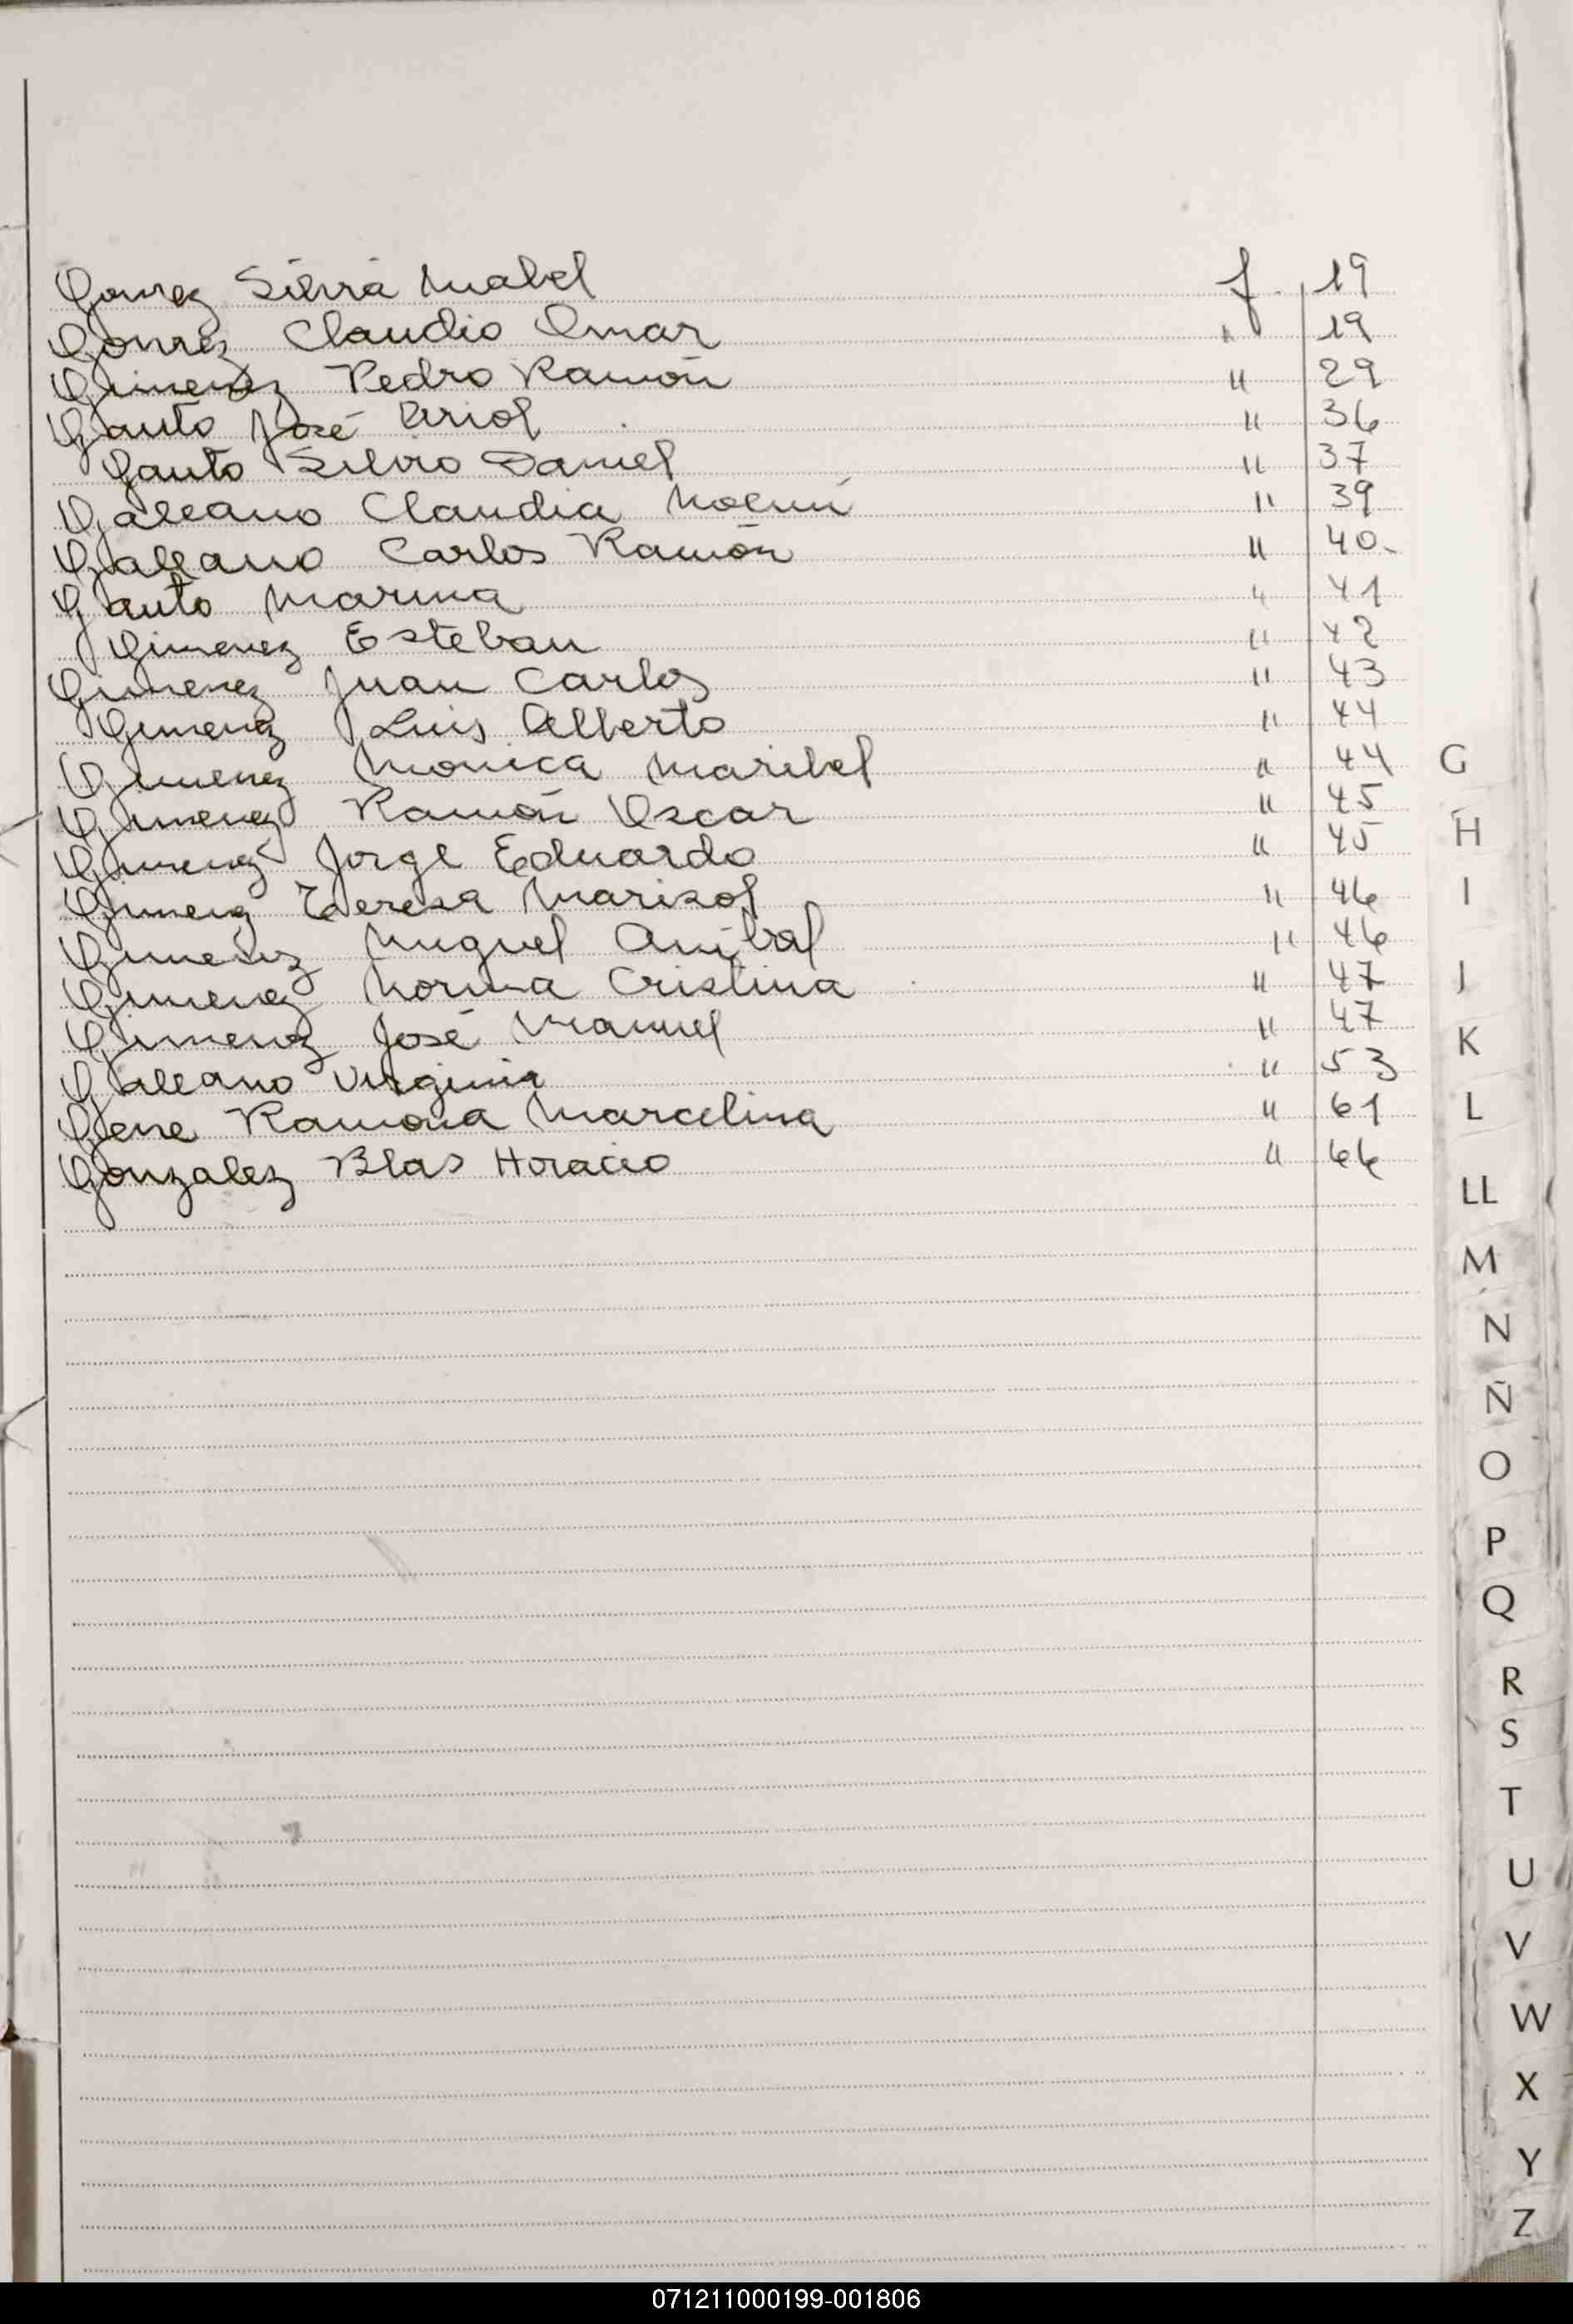 Gomez Silvia Mabel f. 19
Gomez Claudio Omar " 19
Gimenez Pedro Ramón " 29
Gauto José Ariel " 36
Gauto Silvio Daniel " 37
Galeano Claudia Noemí " 39
Galeano Carlos Ramón " 40
Gauto Marina " 41
Gimenez Esteban " 42
Gimenez Juan Carlos " 43
Gimenez Luis Alberto " 44
Gimenez Monica Maribel " 44
Gimenez Ramón Oscar " 45
Gimenez Jorge Eduardo " 45
Gimenez Teresa Marisol " 46
Gimenez Miguel Anibal " 46
Gimenez Norma Cristina " 47
Gimenez José Manuel " 47
Galeano Virginia " 53
Gene Ramona Marcelina " 61
Gonzalez Blas Horacio " 66
G
H
I
J
K
L
LL
M
N
Ñ
O
P
Q
R
S
T
U
V
W
X
Y
Z
071211000199-001806